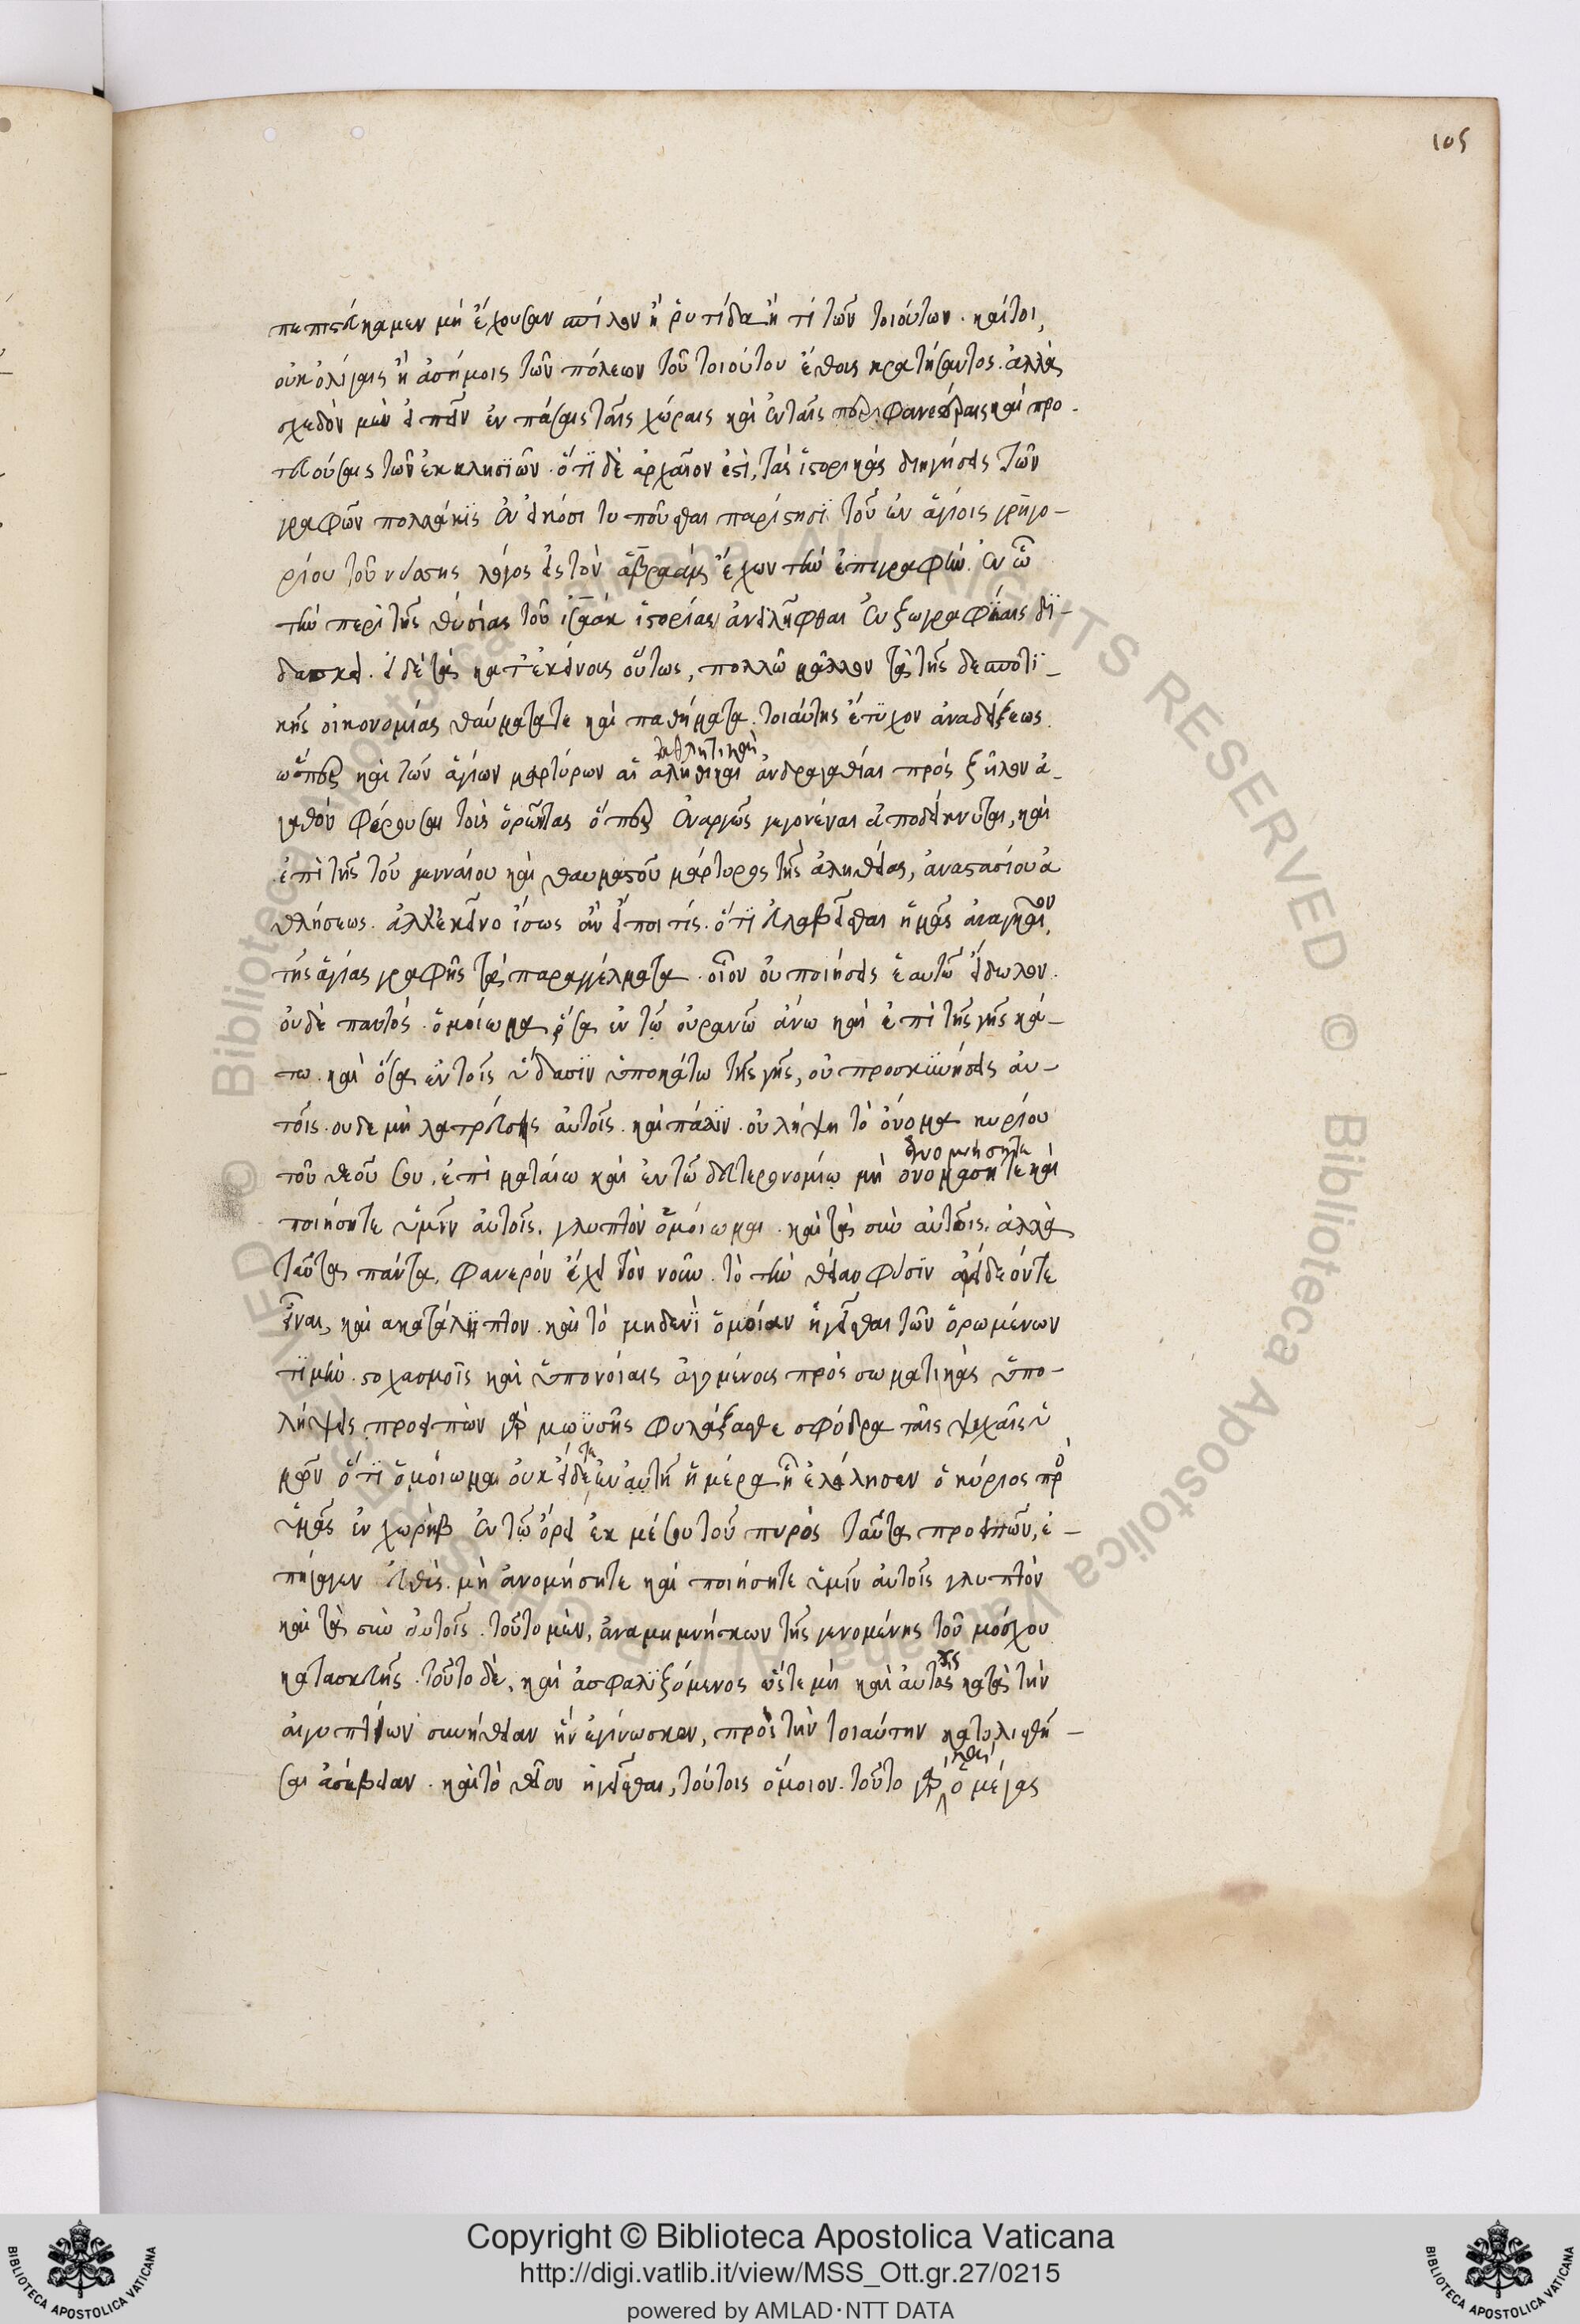 105
πεπιστεύκαμεν μὴ ἔχουσαν σπίλον ἢ ῥυτίδα ἤ τι τῶν τοιούτων. καίτοι,
οὐκ ὀλίγαις ἢ ἀσήμοις τῶν πόλεων τοῦ τοιούτου ἔθους κρατήσαντος. ἀλλὰ
σχεδὸν μὲν εἰπεῖν ἐν πάσαις ταῖς χώραις καὶ ἐν ταῖς περιφανεστέραις καὶ προ-
τευούσαις τῶν ἐκκλησϊῶν. ὅτϊ δὲ ἀρχαῖον ἐστὶ, τὰς ἱστορικὰς διηγήσεις τῶν
γραφῶν πολλάκϊς ἐν εἰκόσι τυποῦσθαι παρίστησϊ τοῦ ἐν ἁγίοις γρηγο-
ρίου τοῦ νύσσης λόγος εἰς τὸν ἀβραὰμ ἔχων τὴν ἐπιγραφὴν. ἐν ᾧ
τὴν περὶ τῆς θυσίας τοῦ ἰσαὰκ ἱστορίας ἀνειλῆφθαι ἐν ζωγραφίαις δϊ-
δασκει. εἰ δὲ τὰ κατ' ἐκείνοις οὕτως, πολλῶ μᾶλλον τὰ τῆς δεσποτι-
κῆς οἰκονομίας θαύματα τε καὶ παθήματα. τοιαύτης ἔτυχον ἀναδείξεως.
ἀθλητικαὶ
ὥσπερ καὶ τῶν ἁγίων μαρτύρων αἱ ἀληθικαι ἀνδραγαθίαι πρὸς ζῆλον ἀ-
γαθὸν φέρουσαι τοὺς ὁρῶντας ὅπερ ἐναργῶς γεγονέναι ἀποδείκνυται, καὶ
ἐπὶ τῆς τοῦ γενναίου καὶ θαυμαστοῦ μάρτυρος τῆς ἀληθείας, ἀναστασίου ἀ
θλήσεως. ἀλλ' ἐκεῖνο ἴσως ἂν εἴποι τίς. ὅτϊ εὐλαβεῖσθαι ἡμᾶς ἀναγκαῖον,
τῆς ἁγίας γραφῆς τὰ παραγγέλματα. οἷον οὐ ποιήσεις ἑαυτῶ εἴδωλον.
οὐδὲ παντός. ὁμοίωμα, ὅσα ἐν τῶ οὐρανῶ ἄνω καὶ ἐπὶ τῆς γῆς κά-
τω. καὶ ὅσα ἐν τοῖς ὕδασϊν ὑποκάτω τῆς γῆς, οὐ προσκϋνήσεις αὐ-
τοῖς. ουδε μὴ λατρεύσης αὐτοῖς. καὶ πάλϊν. οὐ λήψη τὸ ὄνομα κυρίου
ἀνομήσητε
τοῦ θεοῦ σου. ἐπὶ ματαίω καὶ ἐν τῶ δευτερονομίω μὴ ὀνομάσητε καὶ
ποιήσητε ὑμῖν αὐτοῖς. γλυπτὸν ὁμοίωμα. καὶ τὰ σὺν αὐτοῖς. ἀλλὰ
ταῦτα πάντα, φανερὸν ἔχει τὸν νοῦν. τὸ τὴν θείαν φύσϊν ἀειδεόν τε
εἶναι, καὶ ακατάληπτον. καὶ τὸ μηδενϊ ὁμοίαν ἡγεῖσθαι τῶν ὁρωμένων
τϊμὴν. στοχασμοῖς καὶ ὑπονοίαις ἀγομένοις πρὸς σωματικὰς ὑπο-
λήψεις. προειπὼν γὰρ μωϋσῆς φυλάξασθε σφόδρα ταῖς ψυχαῖς ὑ
μῶν ὅτϊ ὁμοίωμα οὐκ εἴδετε ἐν αὐτῆ ἡμέρα ᾗ ἐλάλησεν ὁ κύριος πρὸ
ὑμᾶς ἐν χωρὴβ ἐν τῶ ὄρει ἐκ μέσου τοῦ πυρὸς ταῦτα προειπῶν, ἐ-
πήγαγεν εὐθὺς. μὴ ἀνομήσητε καὶ ποιήσητε ὑμῖν αὐτοῖς γλυπτὸν
καὶ τὰ σὺν αὐτοῖς. τοῦτο μὲν, ἀναμιμνήσκων τῆς γενομένης τοῦ μόσχου
κατασκευῆς. τοῦτο δὲ, καὶ ἀσφαλϊζόμενος ὥστε μὴ καὶ αὐτοὺς κατὰ τὴν
αἰγυπτίων συνήθειαν ἣν ἐγίνωσκον, πρὸς τὴν τοιαύτην κατολισθῆ-
σαι ἀσέβειαν. καὶ τὸ θεῖον ἡγεῖσθαι, τούτοις ὅμοιον. τοῦτο γὰρ ὁ μέγας
Copyright © Biblioteca Apostolica Vaticana
http://digi.vatlib.it/view/MSS_Ott.gr.27/0215
powered by AMLAD·NTT DATA